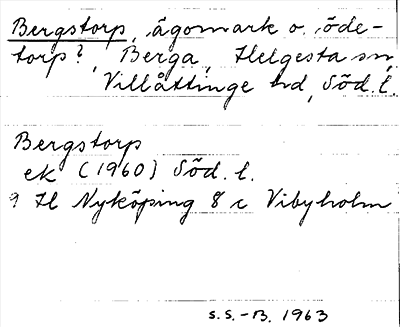 Bergstorp, ägomark o. öde-
torp?, Berga, Helgesta sn,
Villåttinge hd, Söd. l.
Bergstorp
ek (1960) Söd. l.
9 H Nyköping 8 c Vibyholm
S.S.-B. 1963